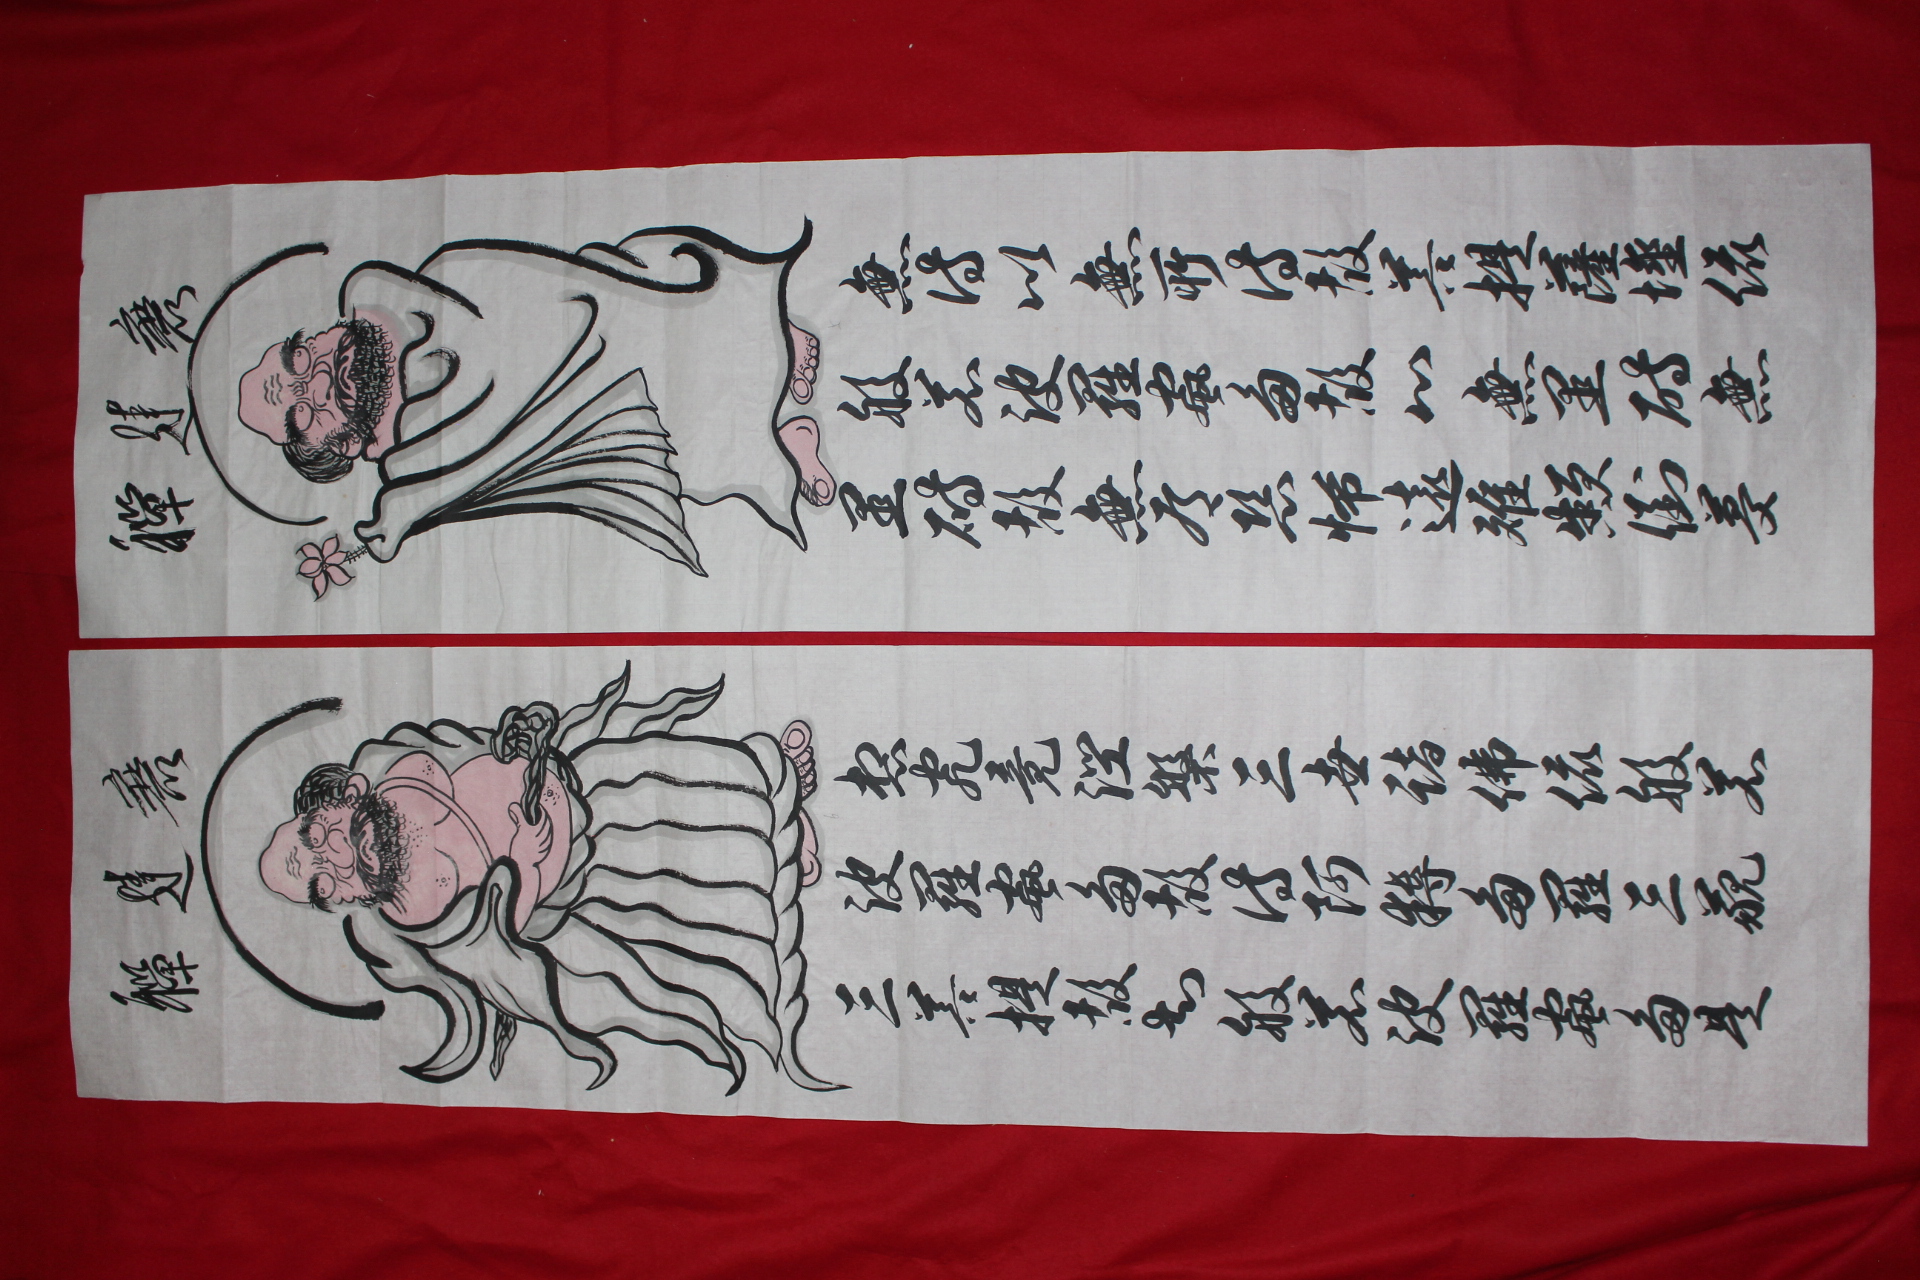 磨達禪
無得以無所得故菩提薩埵依
般若波羅蜜多故心無罣碍無
罣碍故無有恐怖遠離顛倒夢
磨達禪
想究竟涅槃三世諸佛依般若
波羅蜜多故得阿耨多羅三藐
三菩提故知般若波羅蜜多是